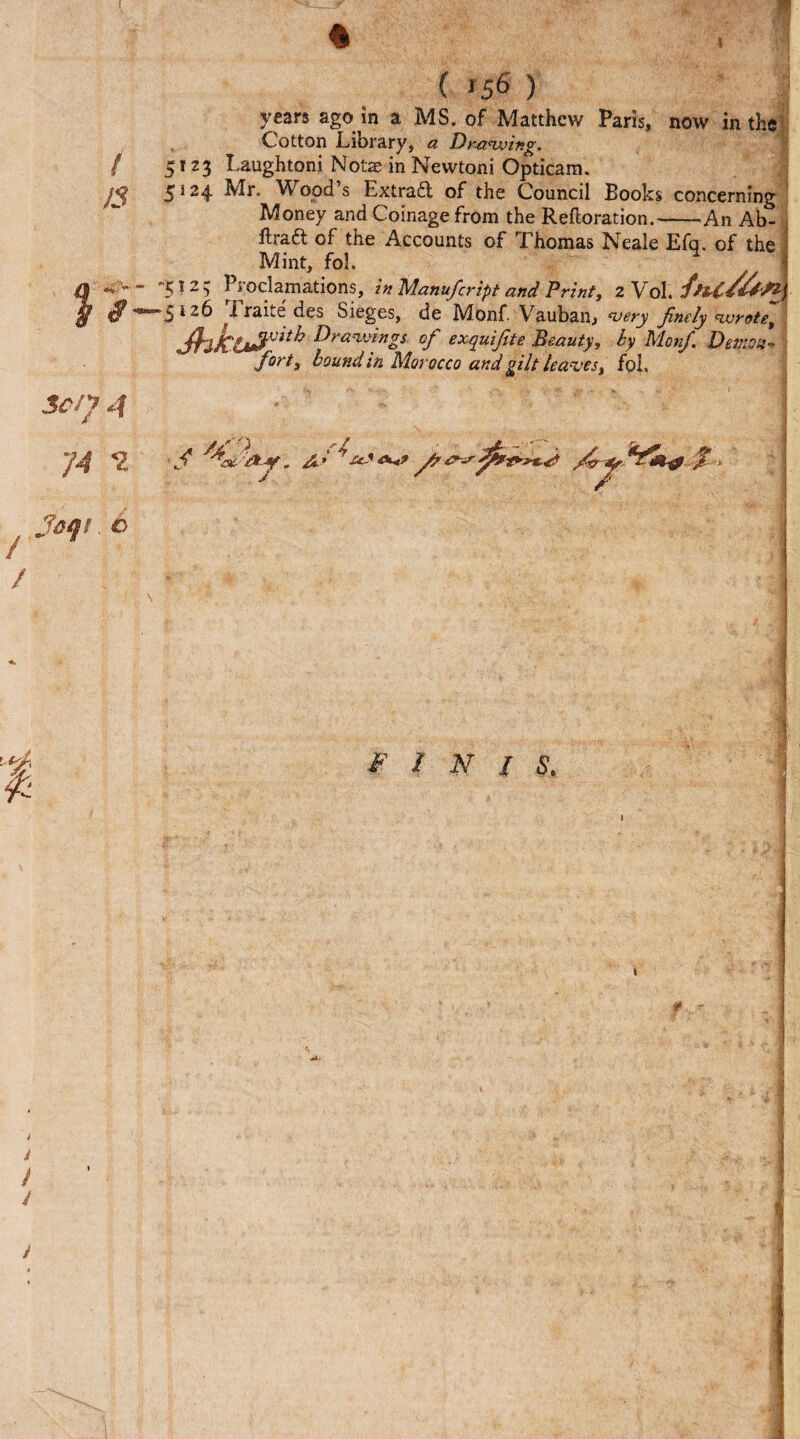 ( 156 )
years ago in a MS. of Matthew Paris, now in the
Cotton Library, a Drawing.
/ 5123 Laughtoni Notæ in Newtoni Opticam.
13 5124 Mr. Wood's Extract of the Council Books concerning
Money and Coinage from the Restoration.——An Ab-
stract of the Accounts of Thomas Neale Esq. of the
Mint, fol.
9 5125 Proclamations, in Manuscript and Print, 2 Vol.
8 5126 Traité des Sieges, de Mons. Vauban, very finely wrote,
with Drawings of exquisite Beauty, by Mons. Demon-
fort, bound in Morocco and gilt leaves, fol.
3017 4
74 2
3091. 6
F I N I S.